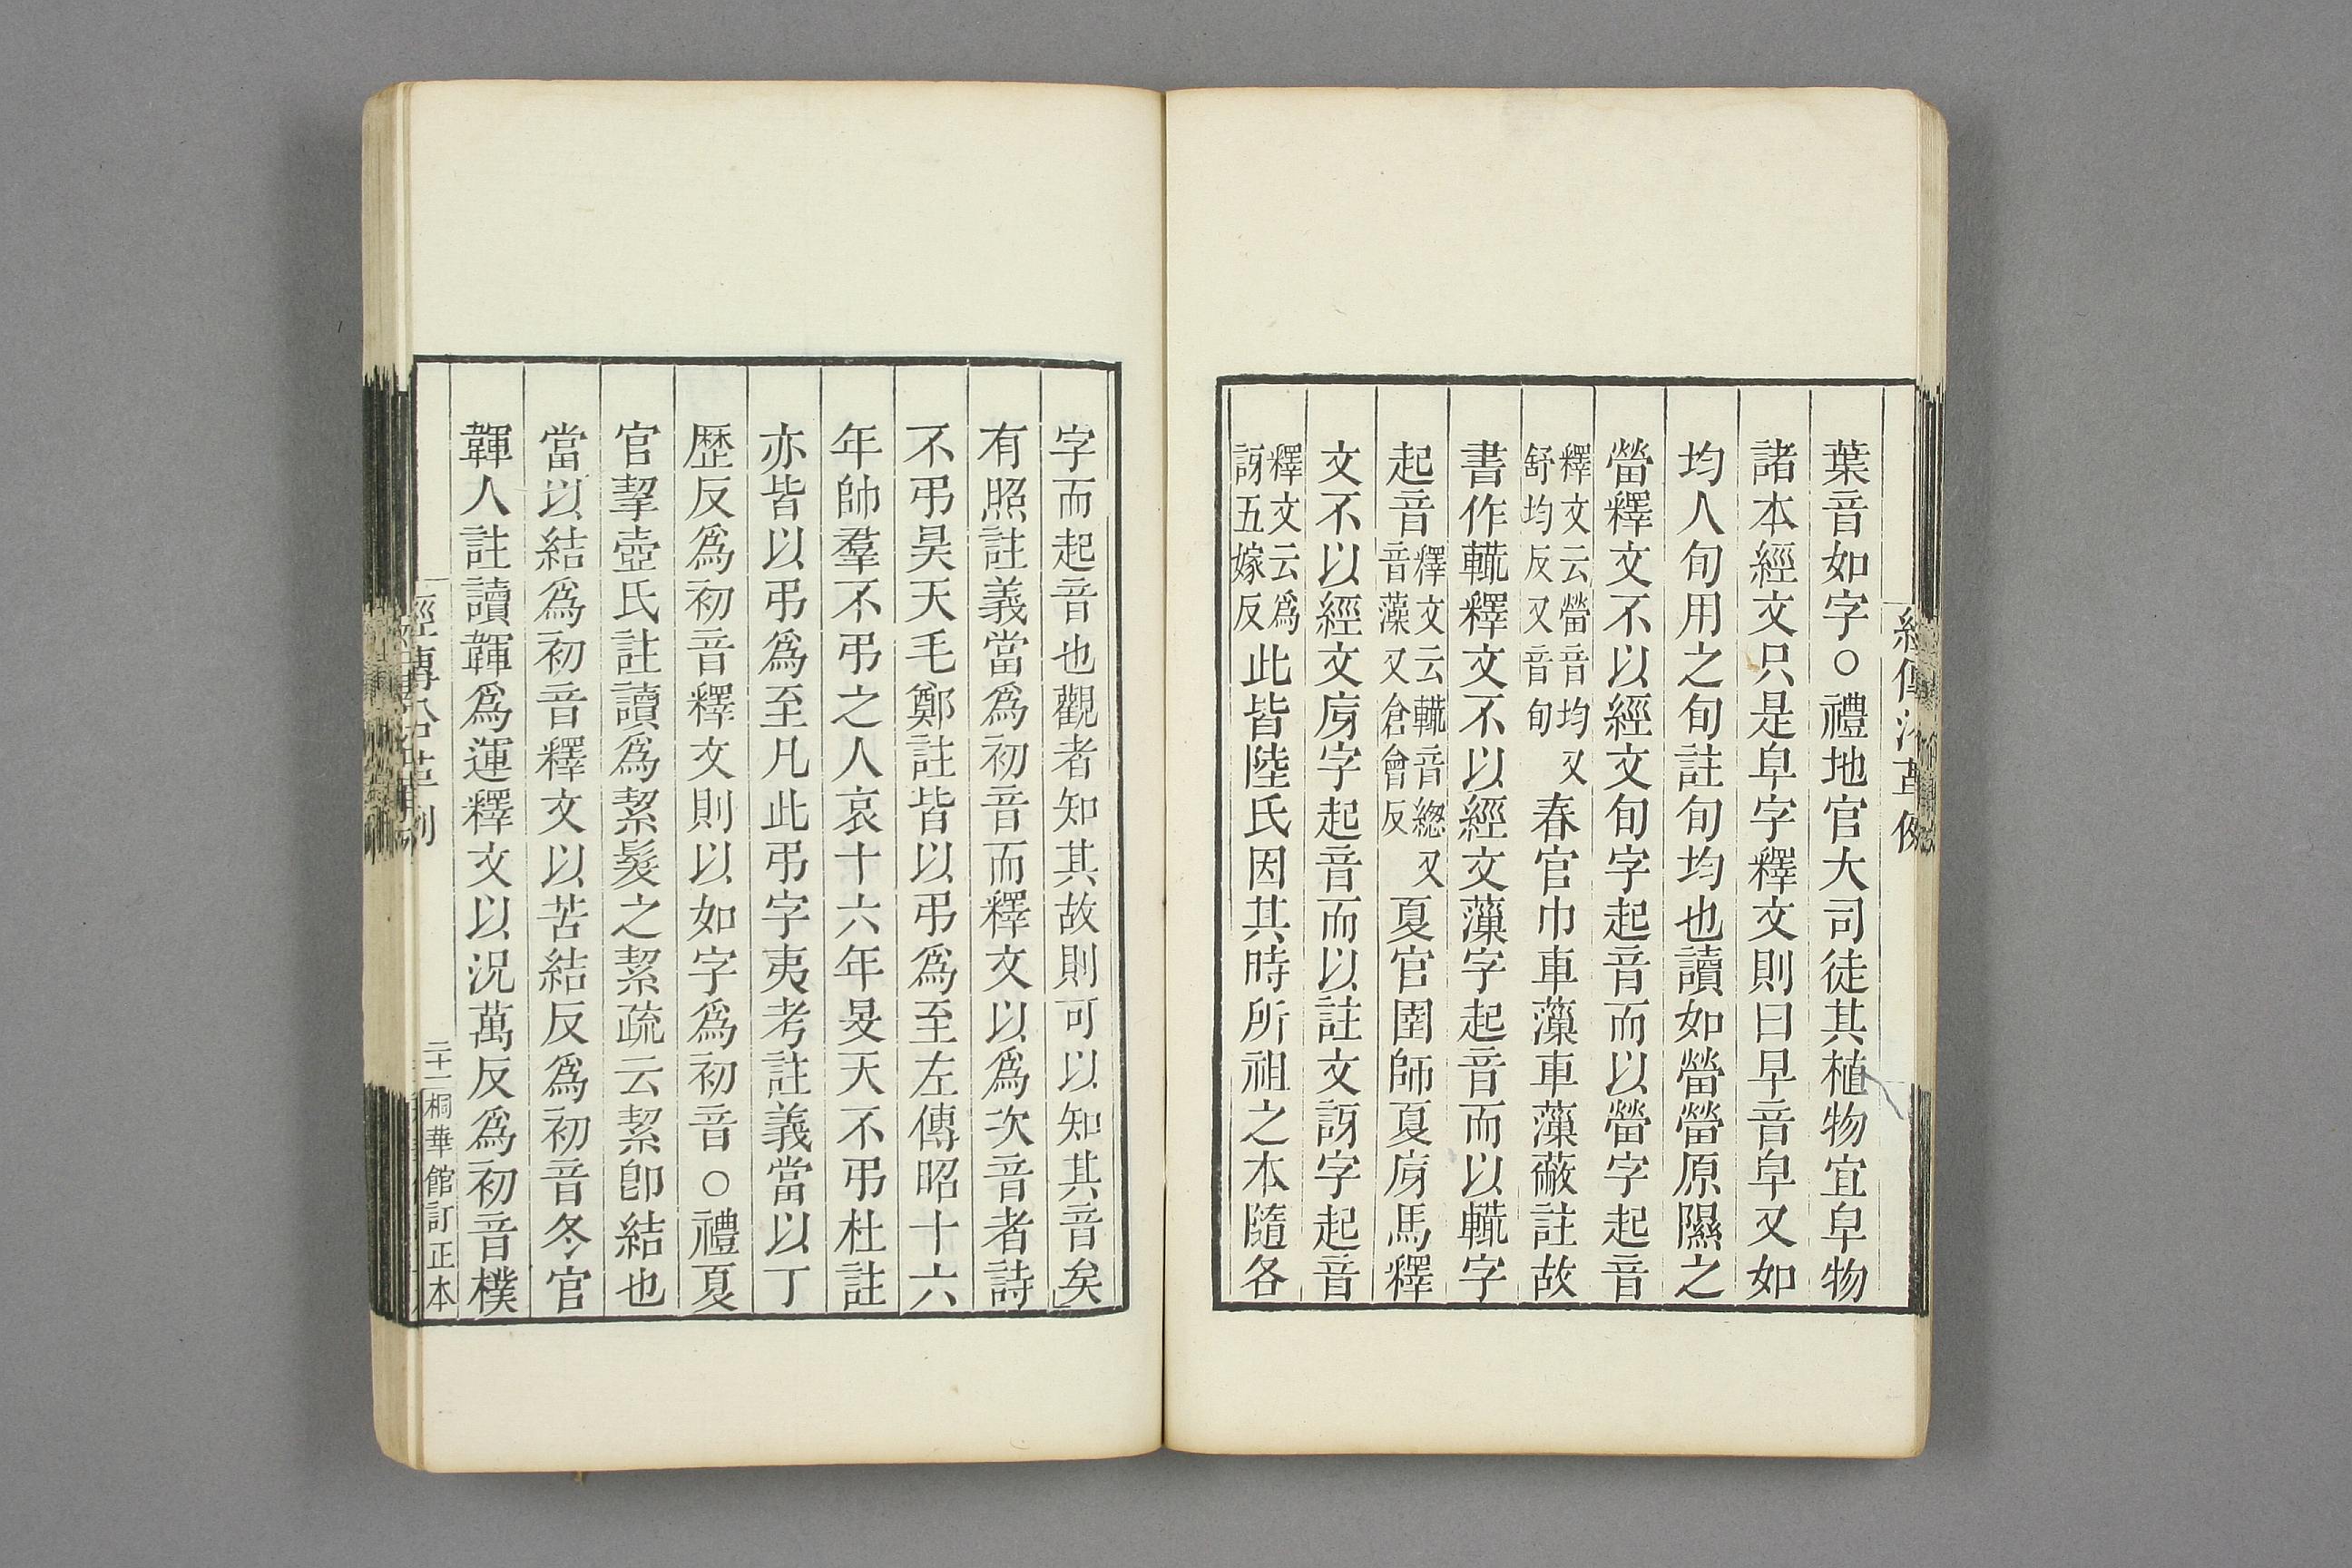 葉音如字○禮地官大司徒其植物宜皁物
諸本經文只是皁字釋文則曰早音皁又如
均人旬用之旬註旬均也讀如䇦䇦原隰之
䇦釋文不以經文旬字起音而以䇦字起音
釋文云䇦音均又
舒均反又音旬
春官巾車薻車薻蔽註故
書作䡬釋文不以經文薻字起音而以䡬字
起音
釋文云䡬音緫又
音藻又倉會反
夏官圉師夏庌馬釋
文不以經文庌字起音而以註文訝字起音
釋文云爲
訝五嫁反
此皆陸氏因其時所祖之本隨各
字而起音也觀者知其故則可以知其音矣
有照註義當爲初音而釋文以爲次音者詩
不弔昊天毛鄭註皆以弔爲至左傳昭十六
年帥羣不弔之人哀十六年旻天不弔杜註
亦皆以弔爲至凡此弔字夷考註義當以丁
歷反爲初音釋文則以如字爲初音○禮夏
官挈壺氏註讀爲絜髮之絜疏云絜卽結也
當以結爲初音釋文以苦結反爲初音冬官
韗人註讀韗爲運釋文以況萬反爲初音樸
經傳沿革例
二十一
桐華館訂正本